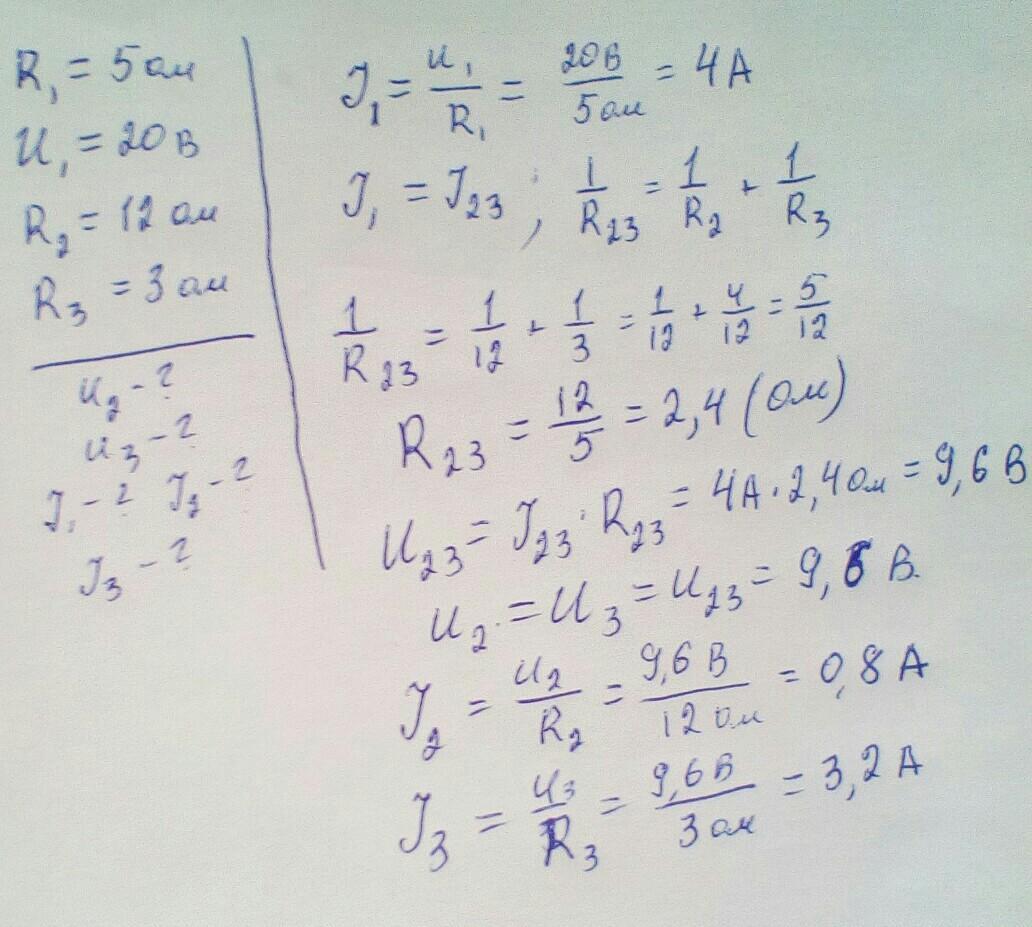 R₁ = 5 ом
U₁ = 20 В
R₂ = 12 ом
R₃ = 3 ом
U₂ - ?
U₃ - ?
J₁ - ? J₂ - ?
J₃ - ?
J₁ = U₁/R₁ = 20В/5ом = 4 А
J₁ = J₂₃ ; 1/R₂₃ = 1/R₂ + 1/R₃
1/R₂₃ = 1/12 + 1/3 = 1/12 + 4/12 = 5/12
R₂₃ = 12/5 = 2,4 (Ом)
U₂₃ = J₂₃ · R₂₃ = 4А · 2,4 Ом = 9,6 В
U₂ = U₃ = U₂₃ = 9,6 В.
J₂ = U₂/R₂ = 9,6 В/12 ом = 0,8 А
J₃ = U₃/R₃ = 9,6 В/3 ом = 3,2 А